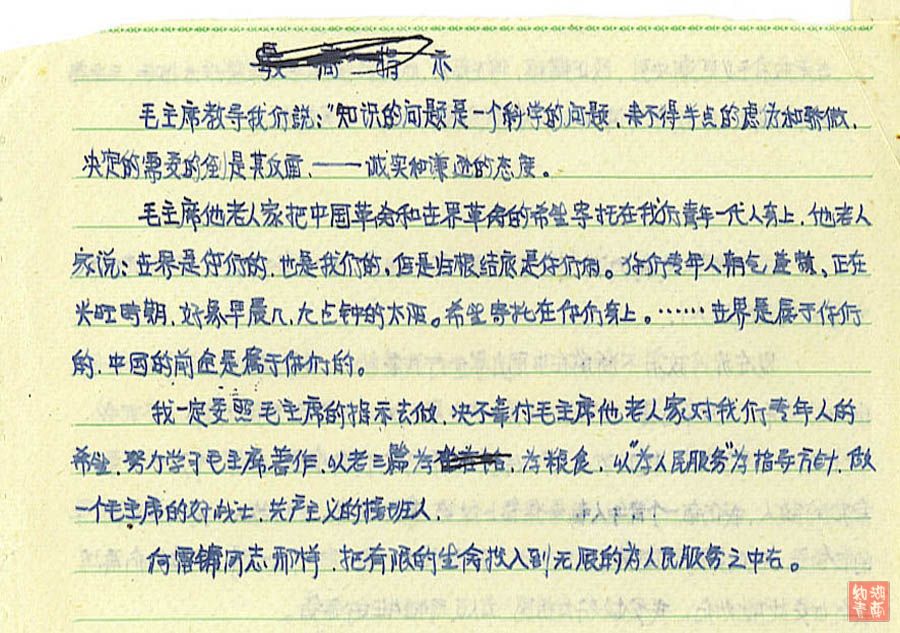 最高指示
毛主席教导我们説：“知识的问题是一个科学的问题，来不得半点的虚为和骄傲，
决定的需要的倒是其反面，——诚实和谦逊的态度。
毛主席他老人家把中国革命和世界革命的希望寄托在我们青年一代人身上，他老人
家说：世界是你们的，也是我们的，但是归根结底是你们的。你们青年人朝气蓬勃、正在
兴旺时期，好象早晨八、九点钟的太阳。希望寄托在你们身上。……世界是属于你们
的，中国的前途是属于你们的。
我一定要照毛主席的指示去做，决不辜付毛主席他老人家对我们青年人的
希望，努力学习毛主席著作，以老三篇为，为粮食，以“为人民服务”为指导方针，做
一个毛主席的好战士，共产主义的接班人，
向雷锋同志那样，把有限的生命投入到无限的为人民服务之中去。
湖南
知青